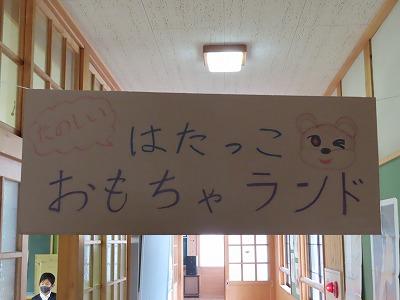 たのしい
はたっこ
おもちゃランド